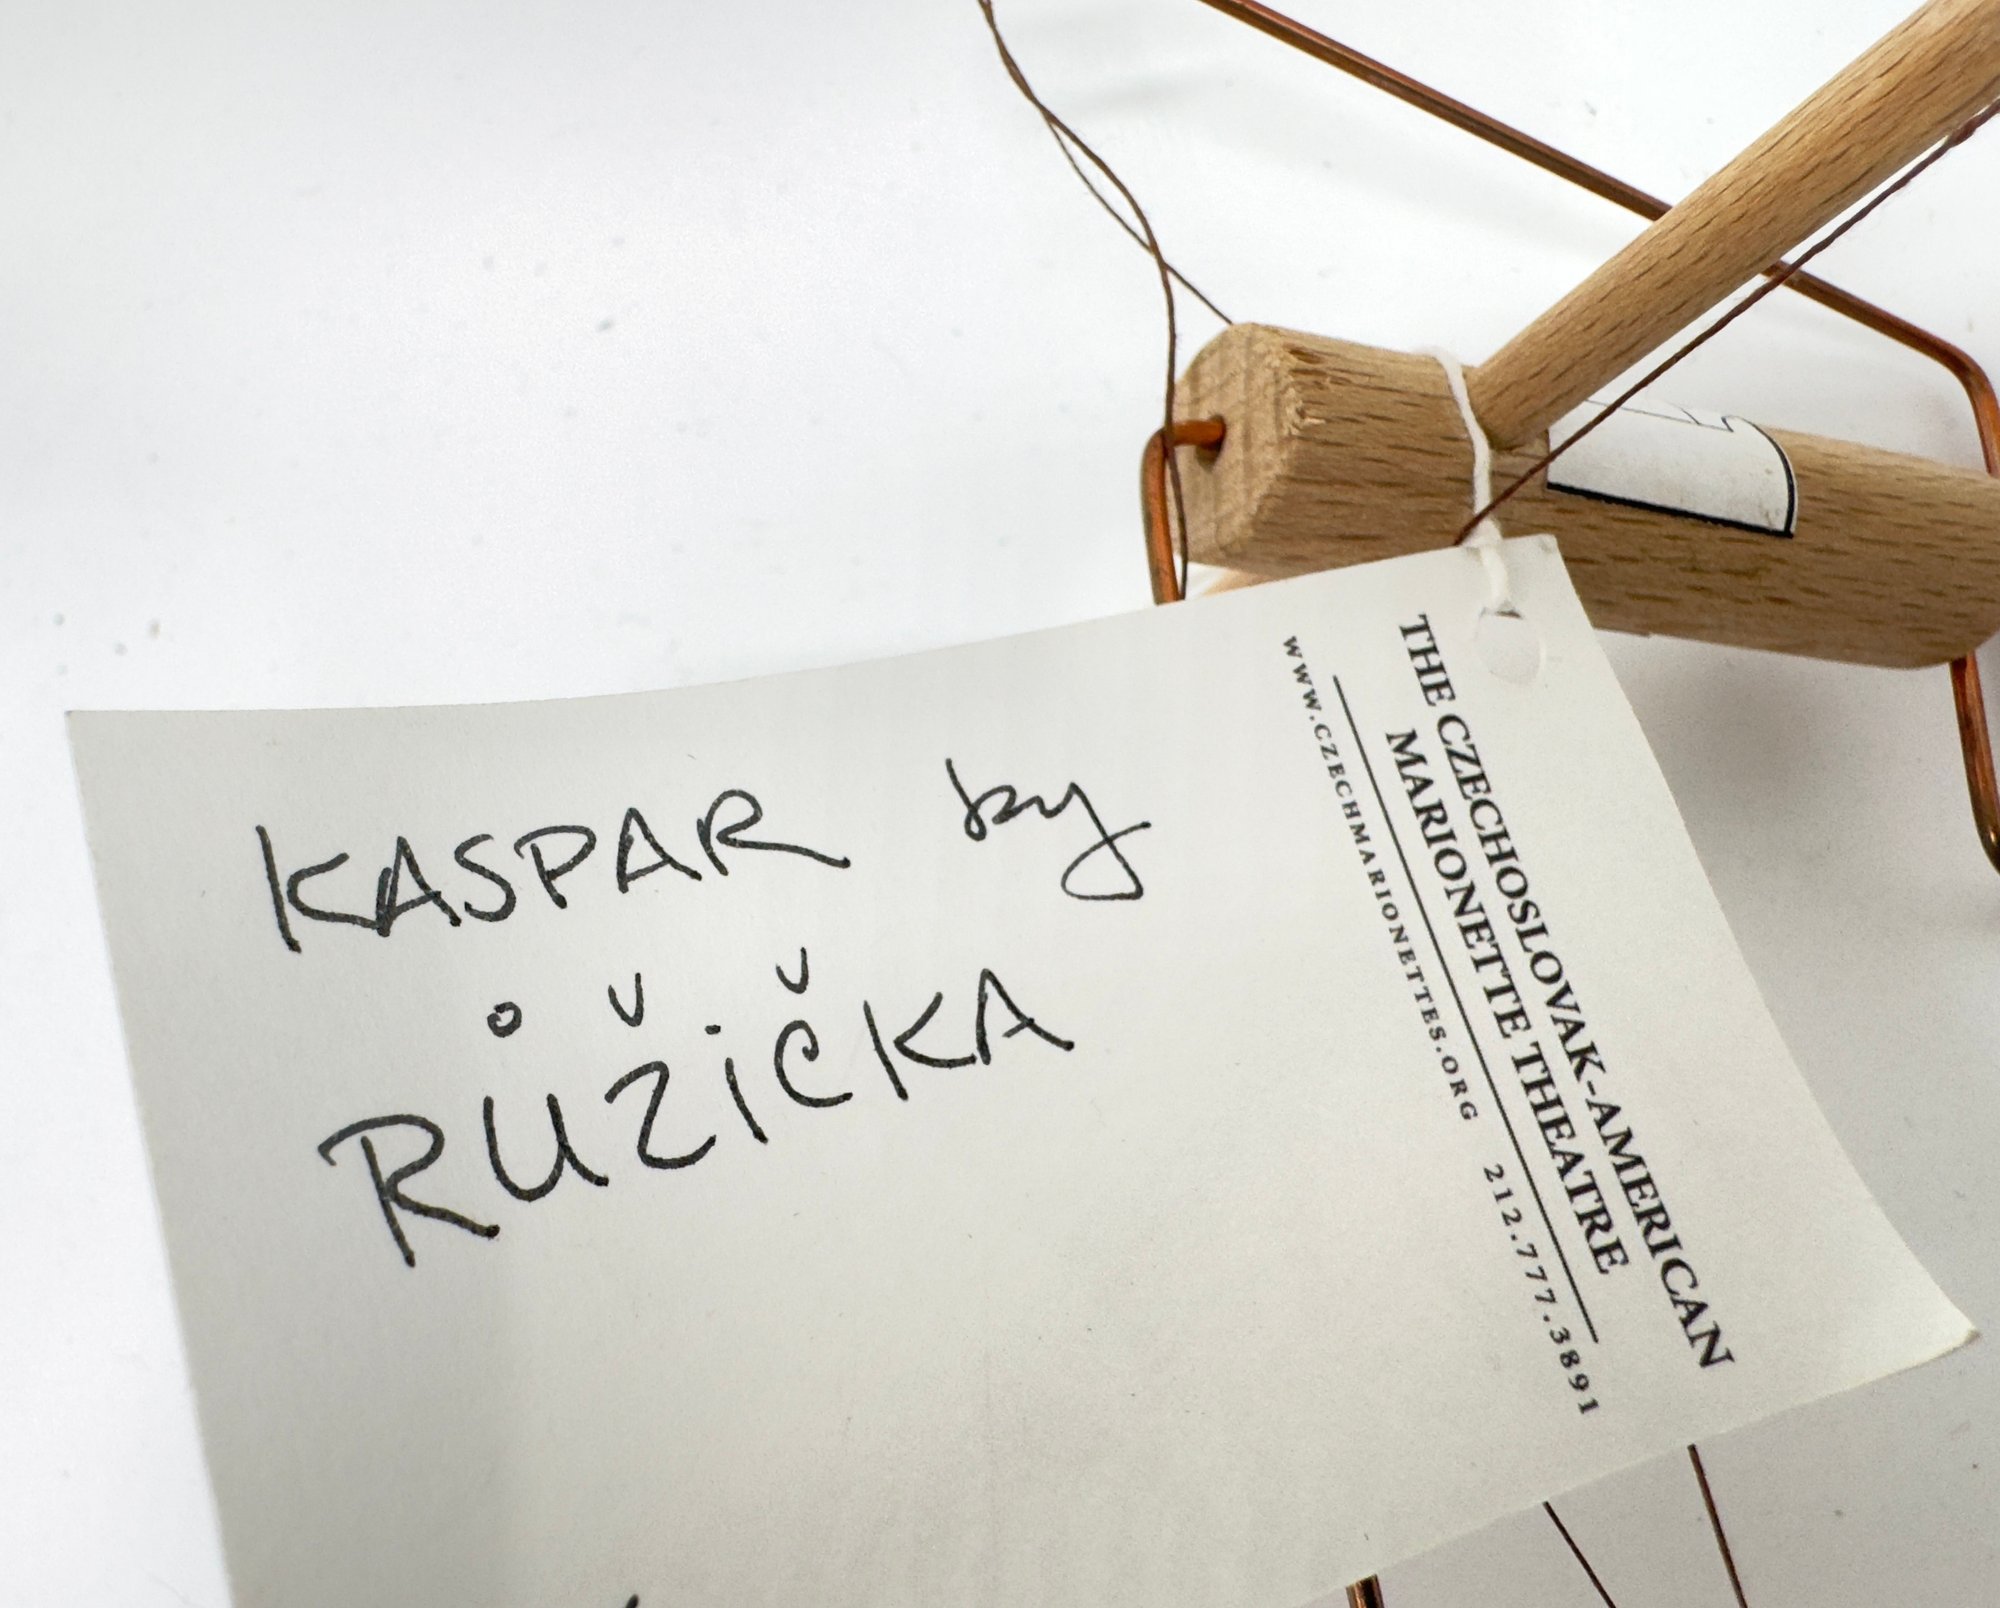 KASPAR by
RŮŽiČKA
THE CZECHOSLOVAK-AMERICAN
MARIONETTE THEATRE
WWW.CZECHMARIONETTES.ORG 212.777.3891